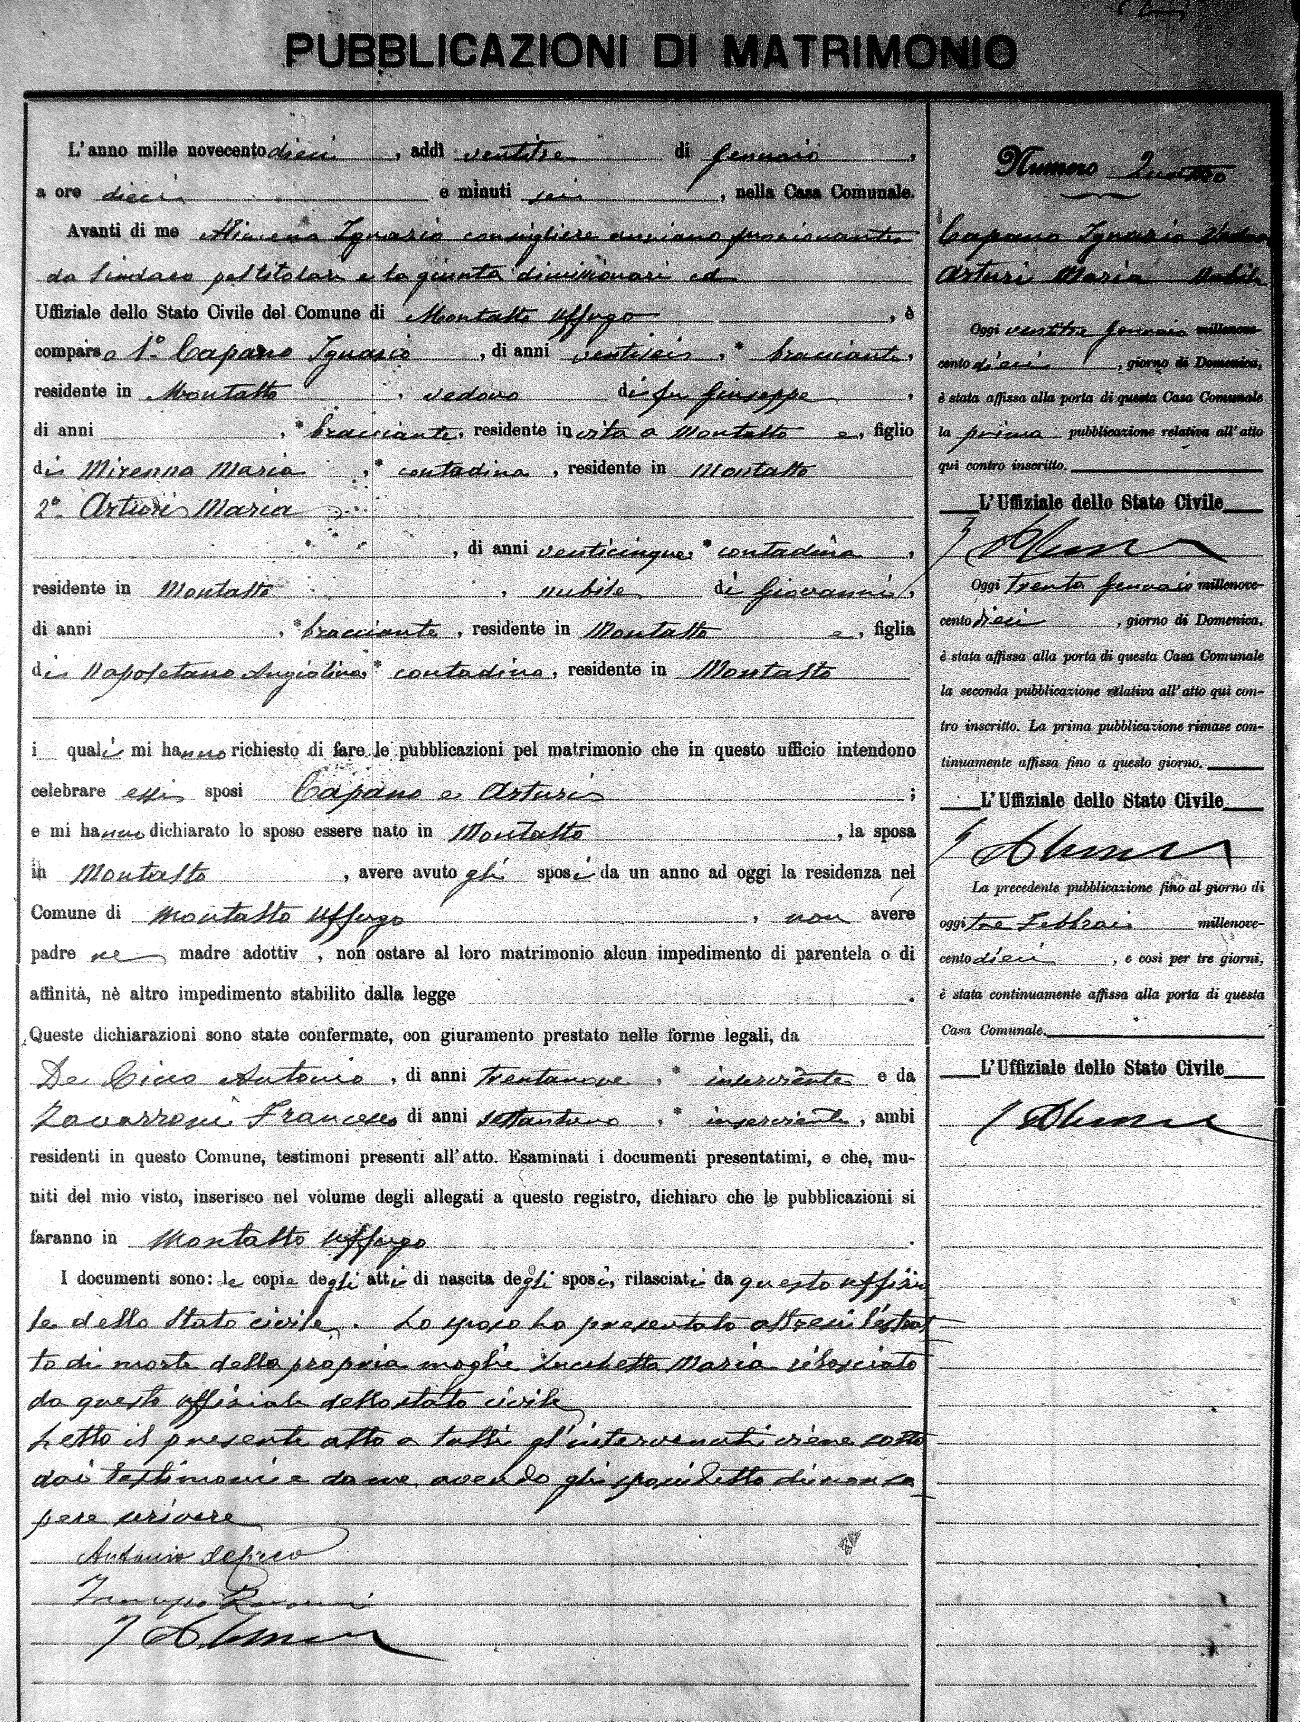 PUBBLICAZIONI DI MATRIMONIO
L'anno mille novecento dieci, addì ventitre di Gennaio,
a ore dieci e minuti sei, nella Casa Comunale.
Avanti di me Ignazio consigliere anziano funzionante
da Sindaco pel titolare e la giunta dimissionari ed
Uffiziale dello Stato Civile del Comune di Montalto Uffugo, è
comparso 1º Capano Ignazio, di anni ventisei, * bracciante,
residente in Montalto, vedovo di fu Giuseppe,
di anni , * bracciante, residente in vita a Montalto e, figlio
di Mirenna Maria, * contadina, residente in Montalto
2º Arturi Maria
, di anni venticinque, * contadina,
residente in Montalto, nubile di Giovanni,
di anni , * bracciante, residente in Montalto e, figlia
di Napoletano Angiolina, * contadina, residente in Montalto
i quali mi hanno richiesto di fare le pubblicazioni pel matrimonio che in questo ufficio intendono
celebrare essi sposi Capano e Arturi ;
e mi hanno dichiarato lo sposo essere nato in Montalto, la sposa
in Montalto, avere avuto gli sposi da un anno ad oggi la residenza nel
Comune di Montalto Uffugo, non avere
padre ne madre adottiv , non ostare al loro matrimonio alcun impedimento di parentela o di
affinità, nè altro impedimento stabilito dalla legge .
Queste dichiarazioni sono state confermate, con giuramento prestato nelle forme legali, da
De Cicco Antonio, di anni trentanove, * inserviente e da
Zavarroni Francesco di anni settantuno, * inserviente, ambi
residenti in questo Comune, testimoni presenti all'atto. Esaminati i documenti presentatimi, e che, mu-
niti del mio visto, inserisco nel volume degli allegati a questo registro, dichiaro che le pubblicazioni si
faranno in Montalto Uffugo.
I documenti sono: le copie degli atti di nascita degli sposi, rilasciati da questo uffizia
le dello Stato civile. Lo sposo ha presentato altresì l'estrat
to di morte della propria moglie Lucchetta Maria rilasciato
da questo uffiziale dello stato civile
Letto il presente atto a tutti gl'intervenuti viene sotto
dai testimoni e da me avendo gli sposi detto di non sa
pere scrivere
Antonio deCicco
Numero Quattro
Capano Ignazio Vedovo
Arturi Maria Nubile
Oggi ventitre Gennaio millenove-
cento dieci, giorno di Domenica,
è stata affissa alla porta di questa Casa Comunale
la prima pubblicazione relativa all'atto
qui contro inscritto.
L'Uffiziale dello Stato Civile
Oggi trenta Gennaio millenove-
cento dieci, giorno di Domenica,
è stata affissa alla porta di questa Casa Comunale
la seconda pubblicazione relativa all'atto qui con-
tro inscritto. La prima pubblicazione rimase con-
tinuamente affissa fino a questo giorno.
L'Uffiziale dello Stato Civile
La precedente pubblicazione fino al giorno di
oggi tre Febbraio millenove-
cento dieci, e così per tre giorni,
è stata continuamente affissa alla porta di questa
Casa Comunale.
L'Uffiziale dello Stato Civile